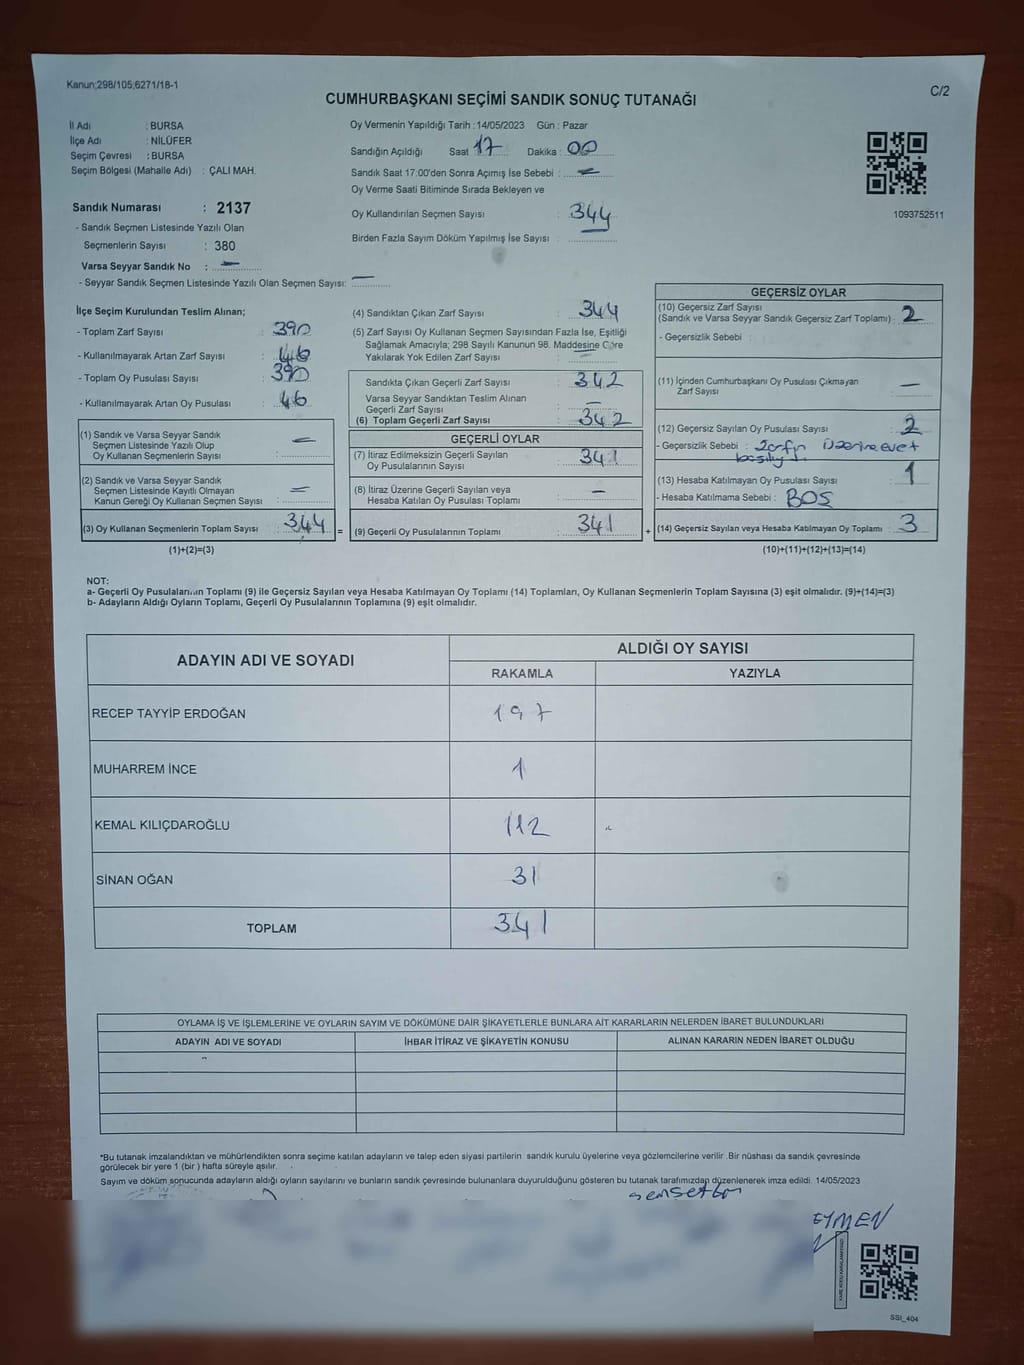 Kanun;298/105;6271/18-1
C/2
CUMHURBAŞKANI SEÇİMİ SANDIK SONUÇ TUTANAĞI
İl Adı : BURSA
İlçe Adı : NİLÜFER
Seçim Çevresi : BURSA
Seçim Bölgesi (Mahalle Adı) : ÇALI MAH.
Sandık Numarası : 2137
- Sandık Seçmen Listesinde Yazılı Olan
Seçmenlerin Sayısı : 380
Varsa Seyyar Sandık No : —
- Seyyar Sandık Seçmen Listesinde Yazılı Olan Seçmen Sayısı: —
Oy Vermenin Yapıldığı Tarih : 14/05/2023 Gün : Pazar
Sandığın Açıldığı Saat 17 Dakika : 00
Sandık Saat 17:00'den Sonra Açımış İse Sebebi : —
Oy Verme Saati Bitiminde Sırada Bekleyen ve
Oy Kullandırılan Seçmen Sayısı : 344
Birden Fazla Sayım Döküm Yapılmış İse Sayısı :
1093752511
İlçe Seçim Kurulundan Teslim Alınan;
- Toplam Zarf Sayısı : 390
- Kullanılmayarak Artan Zarf Sayısı : 46
- Toplam Oy Pusulası Sayısı : 390
- Kullanılmayarak Artan Oy Pusulası : 46
(1) Sandık ve Varsa Seyyar Sandık
Seçmen Listesinde Yazılı Olup
Oy Kullanan Seçmenlerin Sayısı : —
(2) Sandık ve Varsa Seyyar Sandık
Seçmen Listesinde Kayıtlı Olmayan
Kanun Gereği Oy Kullanan Seçmen Sayısı : —
(3) Oy Kullanan Seçmenlerin Toplam Sayısı : 344 =
(1)+(2)=(3)
(4) Sandıktan Çıkan Zarf Sayısı : 344
(5) Zarf Sayısı Oy Kullanan Seçmen Sayısından Fazla İse, Eşitliği
Sağlamak Amacıyla; 298 Sayılı Kanunun 98. Maddesine Göre
Yakılarak Yok Edilen Zarf Sayısı : —
Sandıkta Çıkan Geçerli Zarf Sayısı : 342
Varsa Seyyar Sandıktan Teslim Alınan
Geçerli Zarf Sayısı : —
(6) Toplam Geçerli Zarf Sayısı : 342
GEÇERLİ OYLAR
(7) İtiraz Edilmeksizin Geçerli Sayılan
Oy Pusulalarının Sayısı : 341
(8) İtiraz Üzerine Geçerli Sayılan veya
Hesaba Katılan Oy Pusulası Toplamı : —
(9) Geçerli Oy Pusulalarının Toplamı : 341 +
GEÇERSİZ OYLAR
(10) Geçersiz Zarf Sayısı
(Sandık ve Varsa Seyyar Sandık Geçersiz Zarf Toplamı) : 2
- Geçersizlik Sebebi :
(11) İçinden Cumhurbaşkanı Oy Pusulası Çıkmayan
Zarf Sayısı : —
(12) Geçersiz Sayılan Oy Pusulası Sayısı : 2
- Geçersizlik Sebebi : Zarfın üzerine evet
(13) Hesaba Katılmayan Oy Pusulası Sayısı : 1
- Hesaba Katılmama Sebebi : BOŞ
(14) Geçersiz Sayılan veya Hesaba Katılmayan Oy Toplamı : 3
(10)+(11)+(12)+(13)=(14)
NOT:
a- Geçerli Oy Pusulalarının Toplamı (9) ile Geçersiz Sayılan veya Hesaba Katılmayan Oy Toplamı (14) Toplamları, Oy Kullanan Seçmenlerin Toplam Sayısına (3) eşit olmalıdır. (9)+(14)=(3)
b- Adayların Aldığı Oyların Toplamı, Geçerli Oy Pusulalarının Toplamına (9) eşit olmalıdır.
ADAYIN ADI VE SOYADI
ALDIĞI OY SAYISI
RAKAMLA YAZIYLA
RECEP TAYYİP ERDOĞAN 197
MUHARREM İNCE 1
KEMAL KILIÇDAROĞLU 112
SİNAN OĞAN 31
TOPLAM 341
OYLAMA İŞ VE İŞLEMLERİNE VE OYLARIN SAYIM VE DÖKÜMÜNE DAİR ŞİKAYETLERLE BUNLARA AİT KARARLARIN NELERDEN İBARET BULUNDUKLARI
ADAYIN ADI VE SOYADI İHBAR İTİRAZ VE ŞİKAYETİN KONUSU ALINAN KARARIN NEDEN İBARET OLDUĞU
*Bu tutanak imzalandıktan ve mühürlendikten sonra seçime katılan adayların ve talep eden siyasi partilerin sandık kurulu üyelerine veya gözlemcilerine verilir .Bir nüshası da sandık çevresinde
görülecek bir yere 1 (bir ) hafta süreyle asılır.
Sayım ve döküm sonucunda adayların aldığı oyların sayılarını ve bunların sandık çevresinde bulunanlara duyurulduğunu gösteren bu tutanak tarafımızdan düzenlenerek imza edildi. 14/05/2023
SSI_404